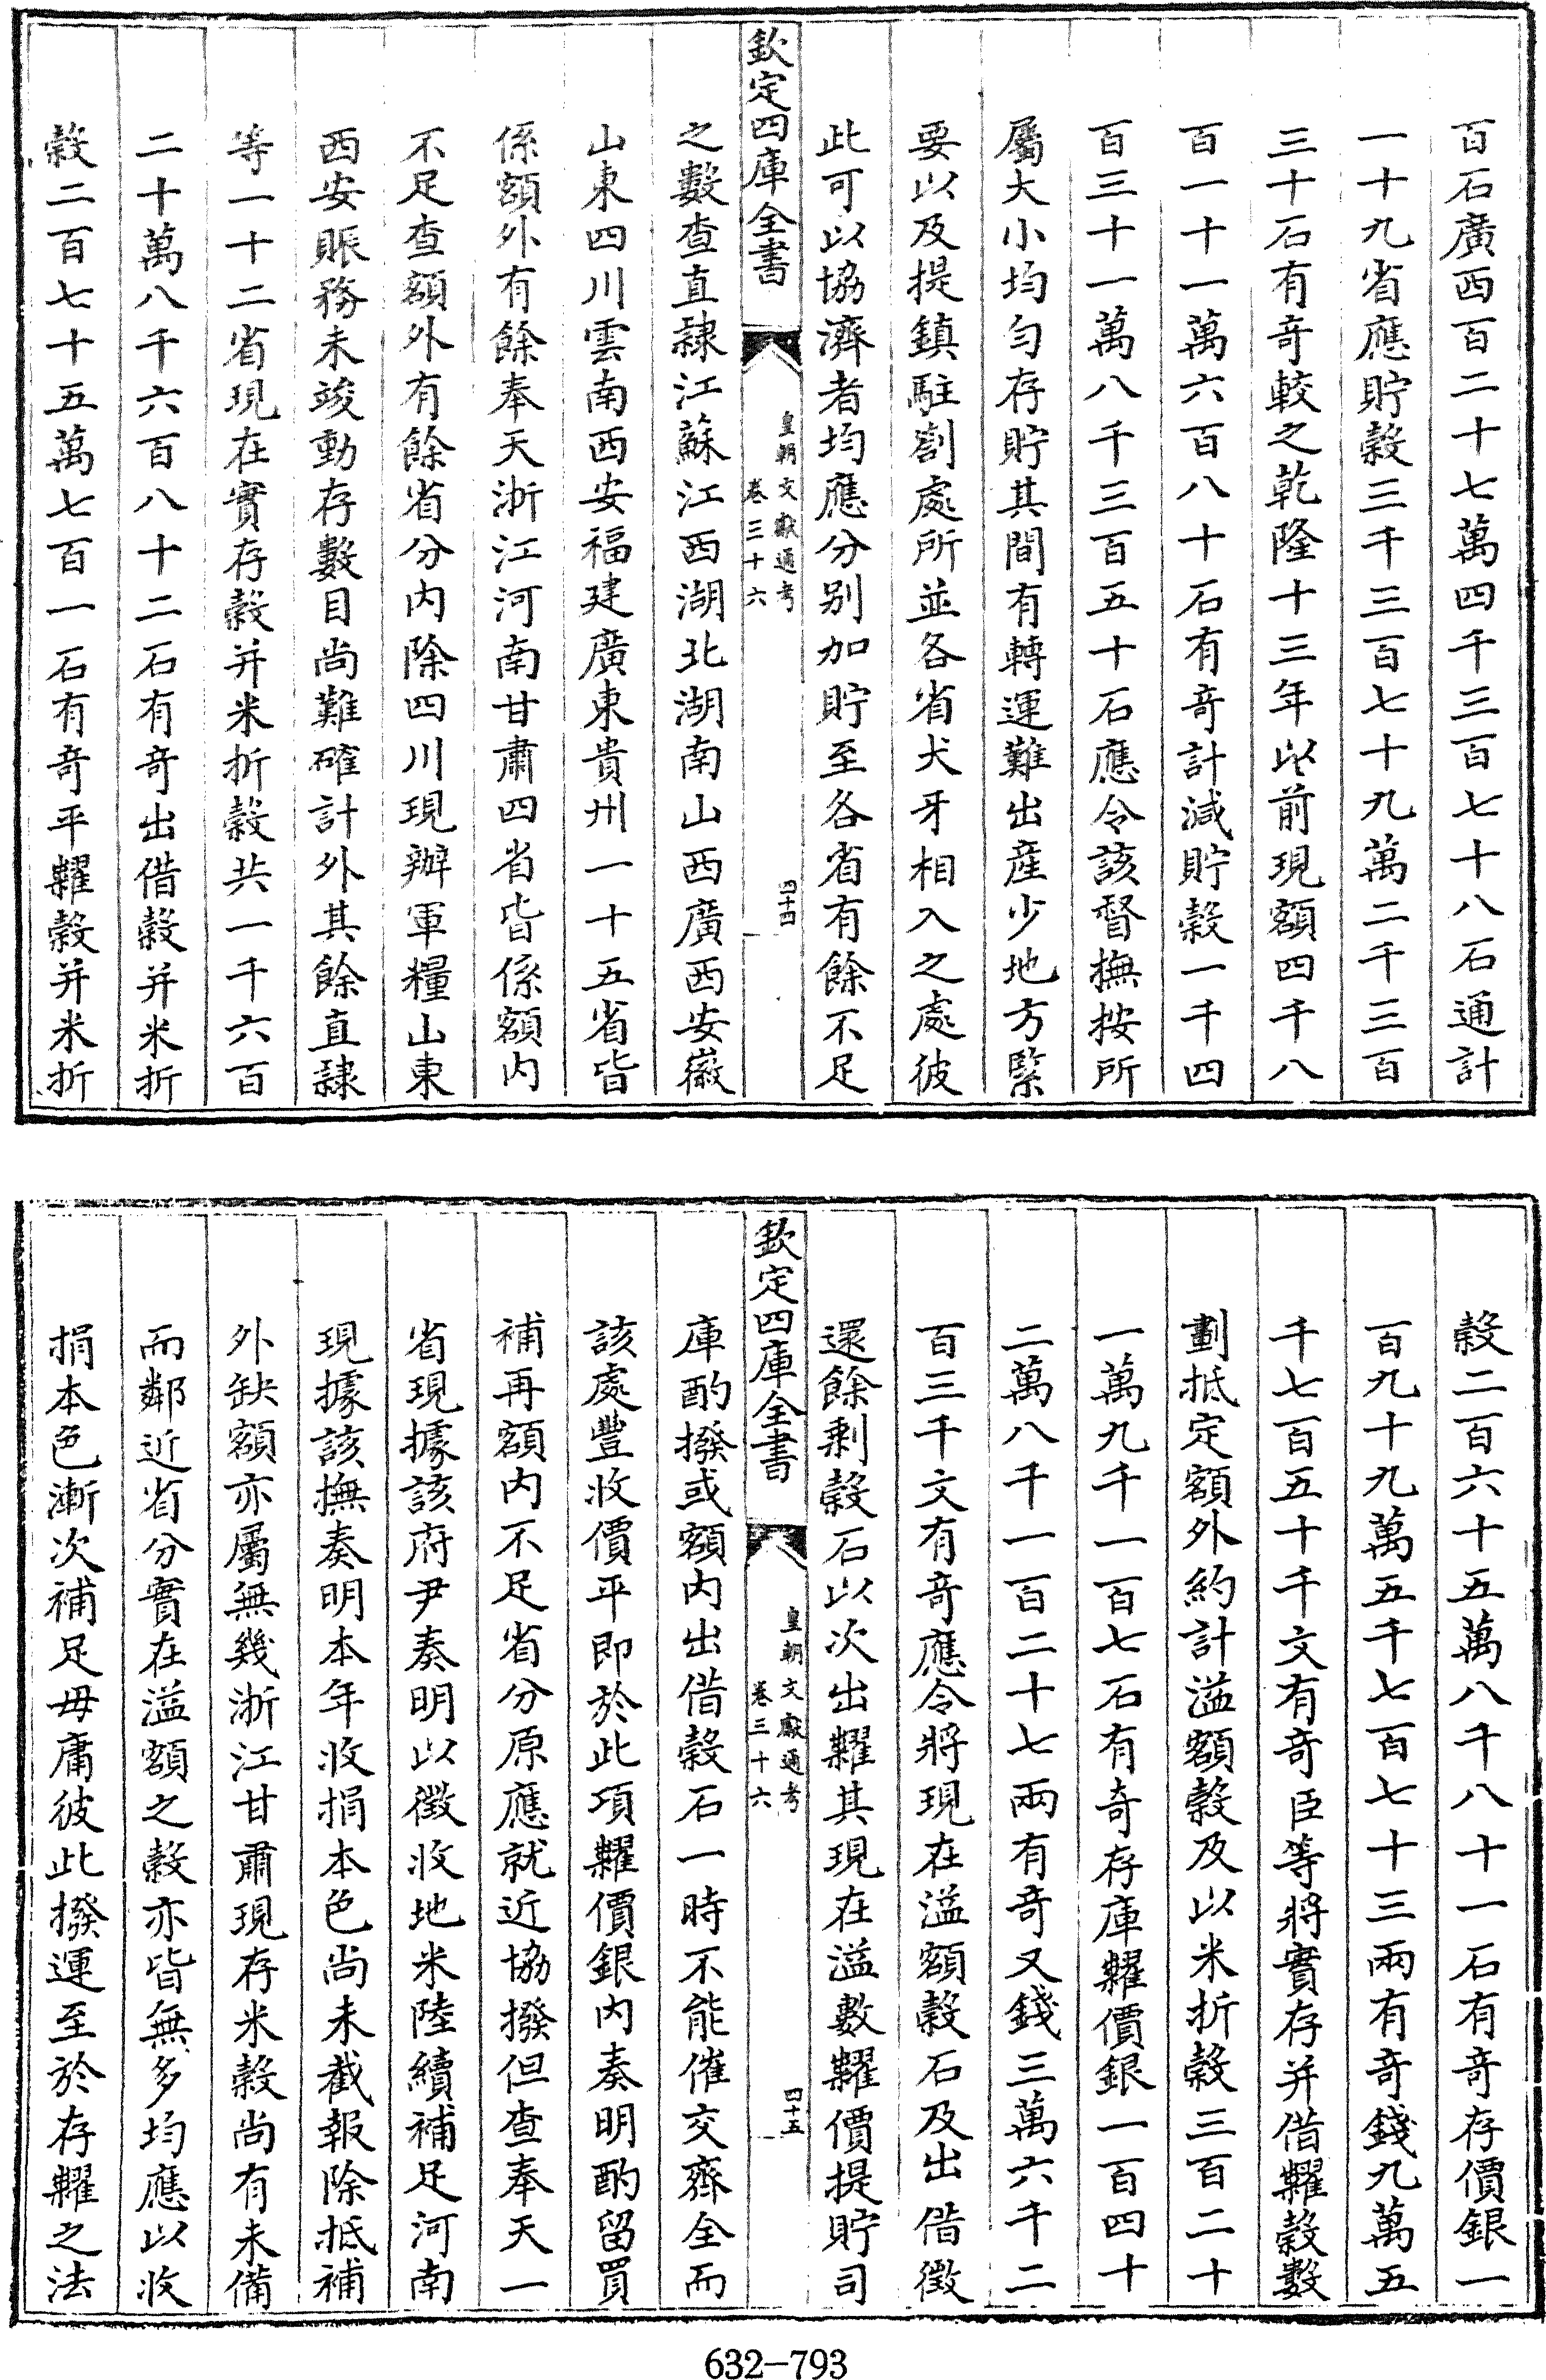 百石廣西百二十七萬四千三百七十八石通計
一十九省應貯穀三千三百七十九萬二千三百
三十石有奇較之乾隆十三年以前現額四千八
百一十一萬六百八十石有奇計減貯穀一千四
百三十一萬八千三百五十石應令該督撫按所
屬大小均勻存貯其間有轉運難出産少地方緊
要以及提鎮駐劄處所並各省犬牙相入之處彼
此可以協濟者均應分别加貯至各省有餘不足
欽定四庫全書
皇朝文獻通考
卷三十六
四十四
之數查直隸江蘇江西湖北湖南山西廣西安徽
山東四川雲南西安福建廣東貴州一十五省皆
係額外有餘奉天浙江河南甘肅四省皆係額内
不足查額外有餘省分内除四川現辦軍糧山東
西安賬務未竣動存數目尚難確計外其餘直隸
等一十二省現在實存穀并米折穀共一千六百
二十萬八千六百八十二石有奇出借穀并米折
穀二百七十五萬七百一石有奇平糶穀并米折
穀二百六十五萬八千八十一石有奇存價銀一
百九十九萬五千七百七十三兩有奇錢九萬五
千七百五十千文有奇臣等將實存并借糶穀數
劃抵定額外約計溢額穀及以米折穀三百二十
一萬九千一百七石有奇存庫糶價銀一百四十
二萬八千一百二十七兩有奇又錢三萬六千二
百三千文有奇應令將現在溢額穀石及出借徵
還餘剩穀石以次出糶其現在溢數糶價提貯司
欽定四庫全書
皇朝文獻通考
卷三十六
四十五
庫酌撥或額内出借穀石一時不能催交齊全而
該處豐收價平即於此項糶價銀内奏明酌留買
補再額内不足省分原應就近協撥但查奉天一
省現據該府尹奏明以徵收地米陸續補足河南
現據該撫奏明本年收捐本色尚未截報除抵補
外缺額亦屬無幾浙江甘肅現存米穀尚有未備
而鄰近省分實在溢額之穀亦皆無多均應以收
捐本色漸次補足毋庸彼此撥運至於存糶之法
632-793